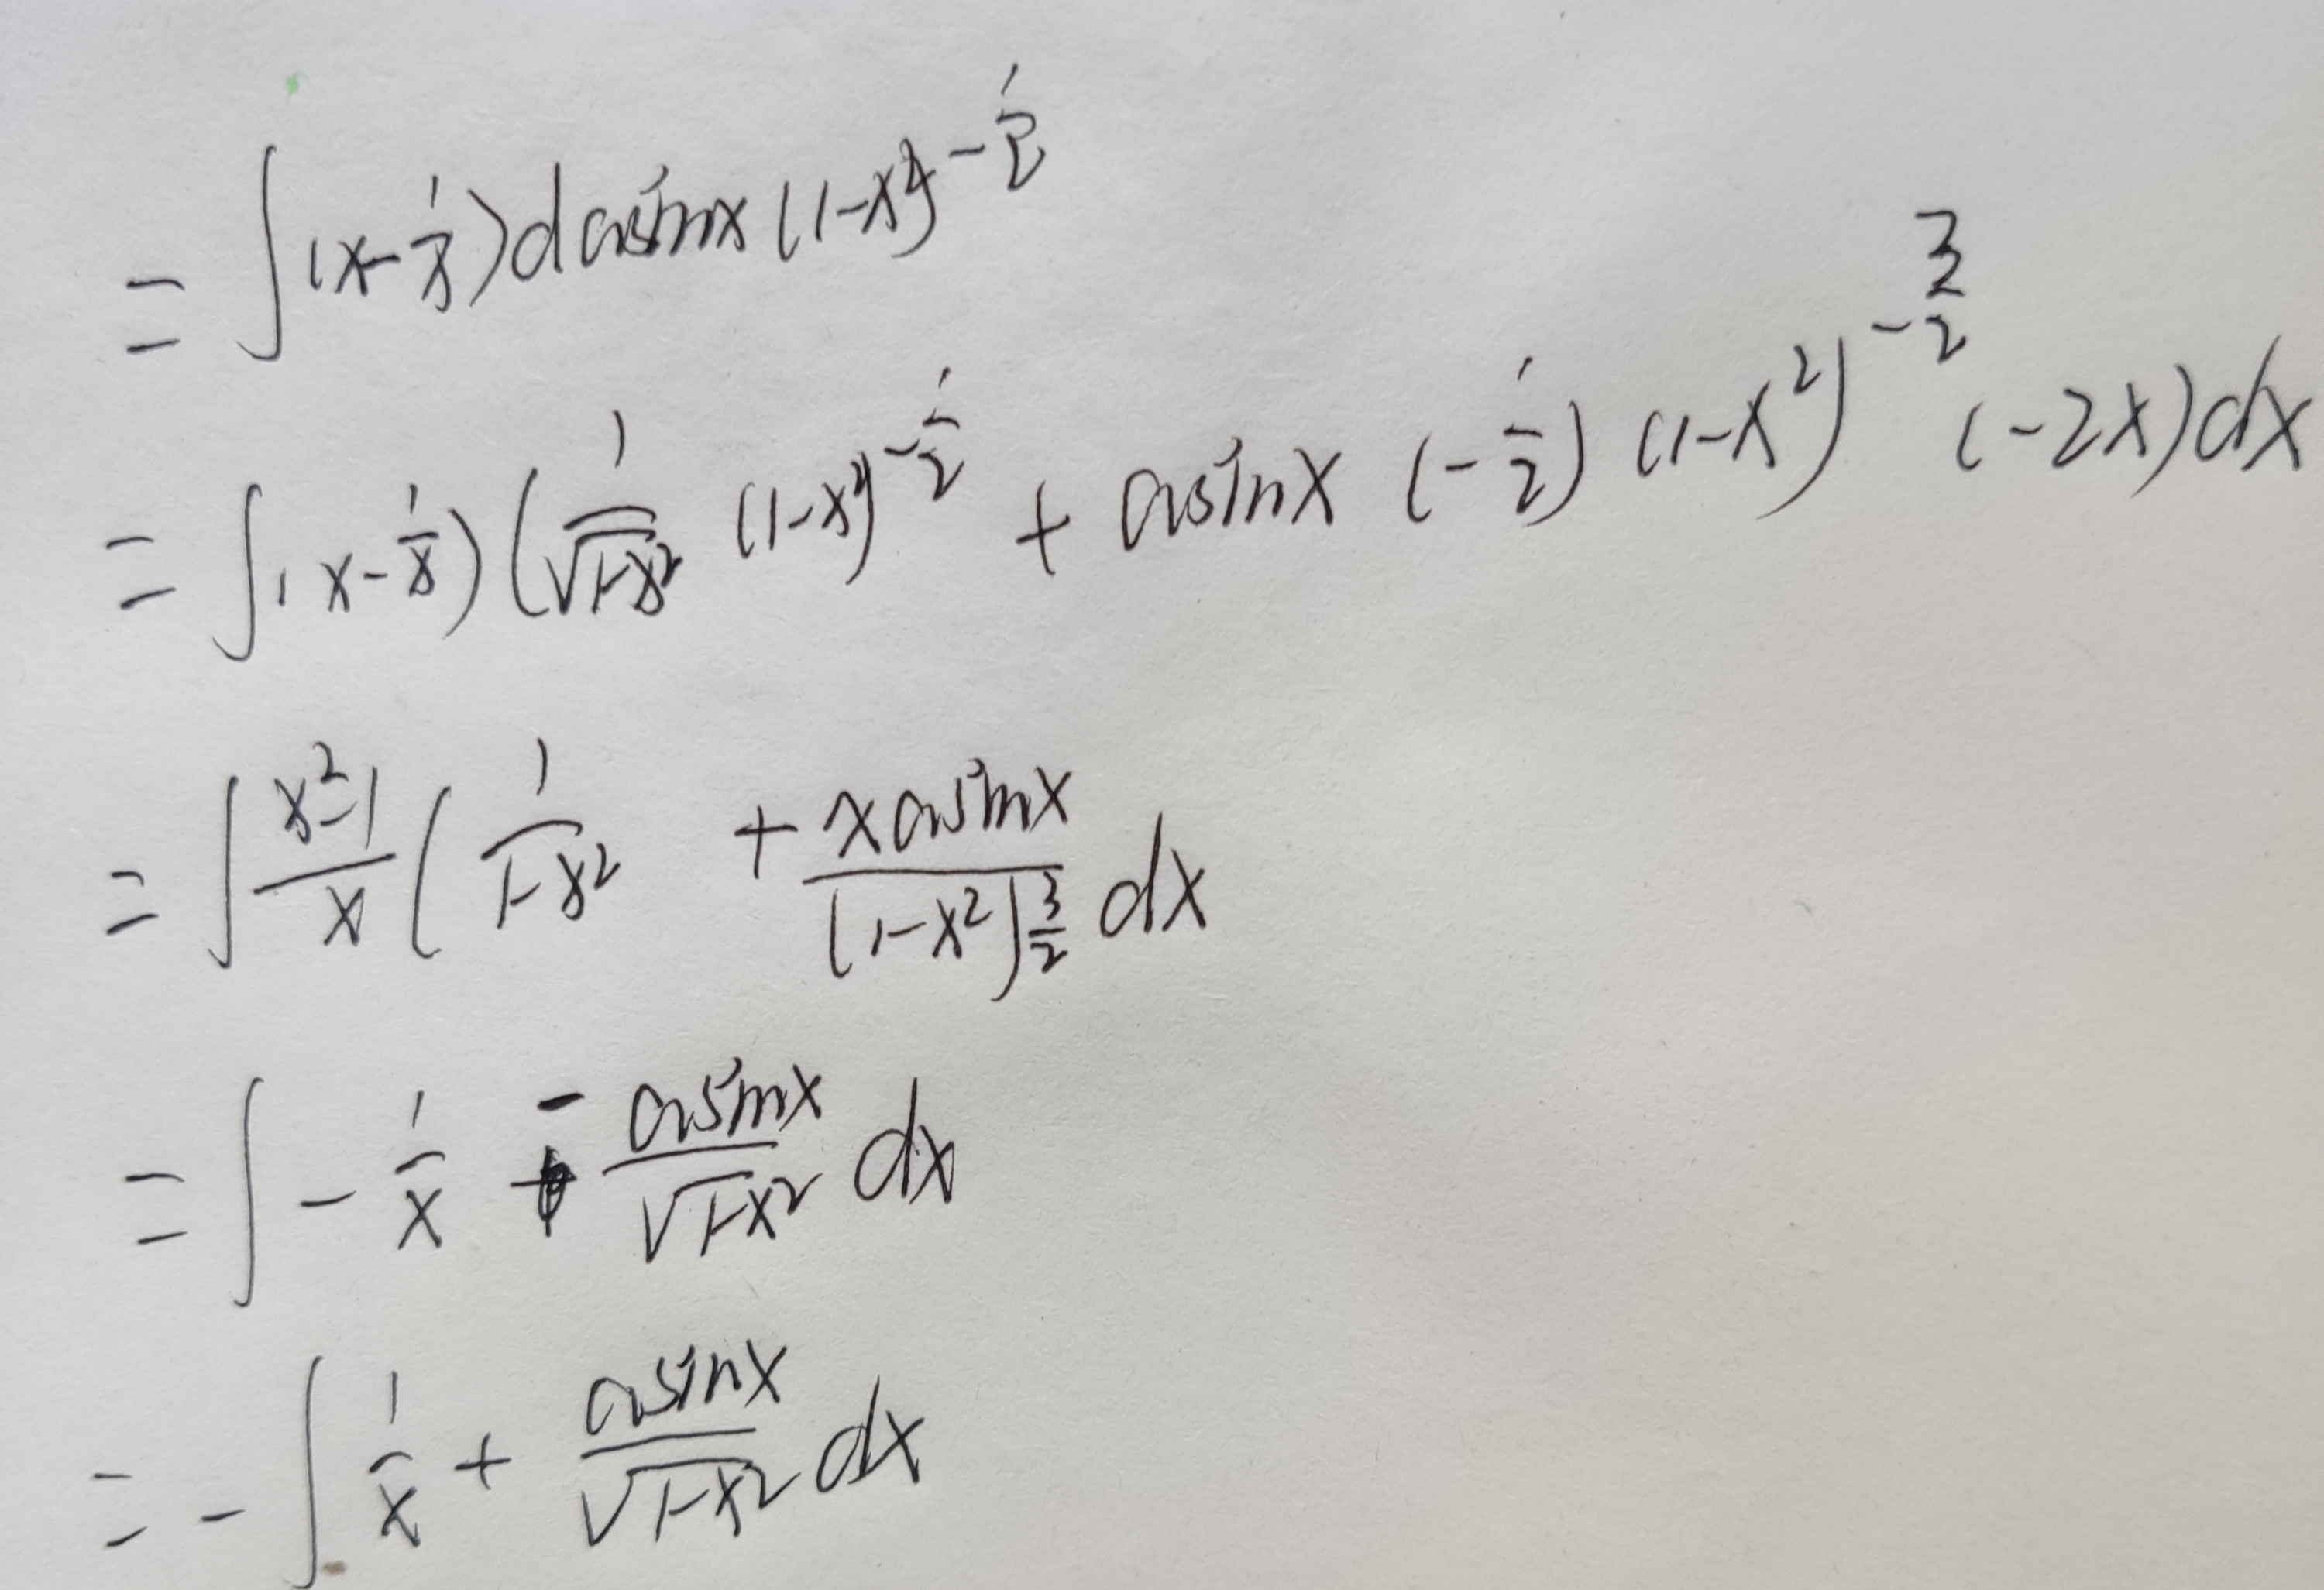 = ∫(x-1/x)d arsinx (1-x²)^(-1/2)
= ∫(x-1/x)(1/√(1-x²) (1-x²)^(-1/2) + arsinx (-1/2)(1-x²)^(-3/2) (-2x)dx
= ∫ (x²-1)/x (1/(1-x²) + xarsinx/(1-x²)^(3/2) dx
= ∫ -1/x - arsinx/√(1-x²) dx
= -∫ 1/x + arsinx/√(1-x²) dx